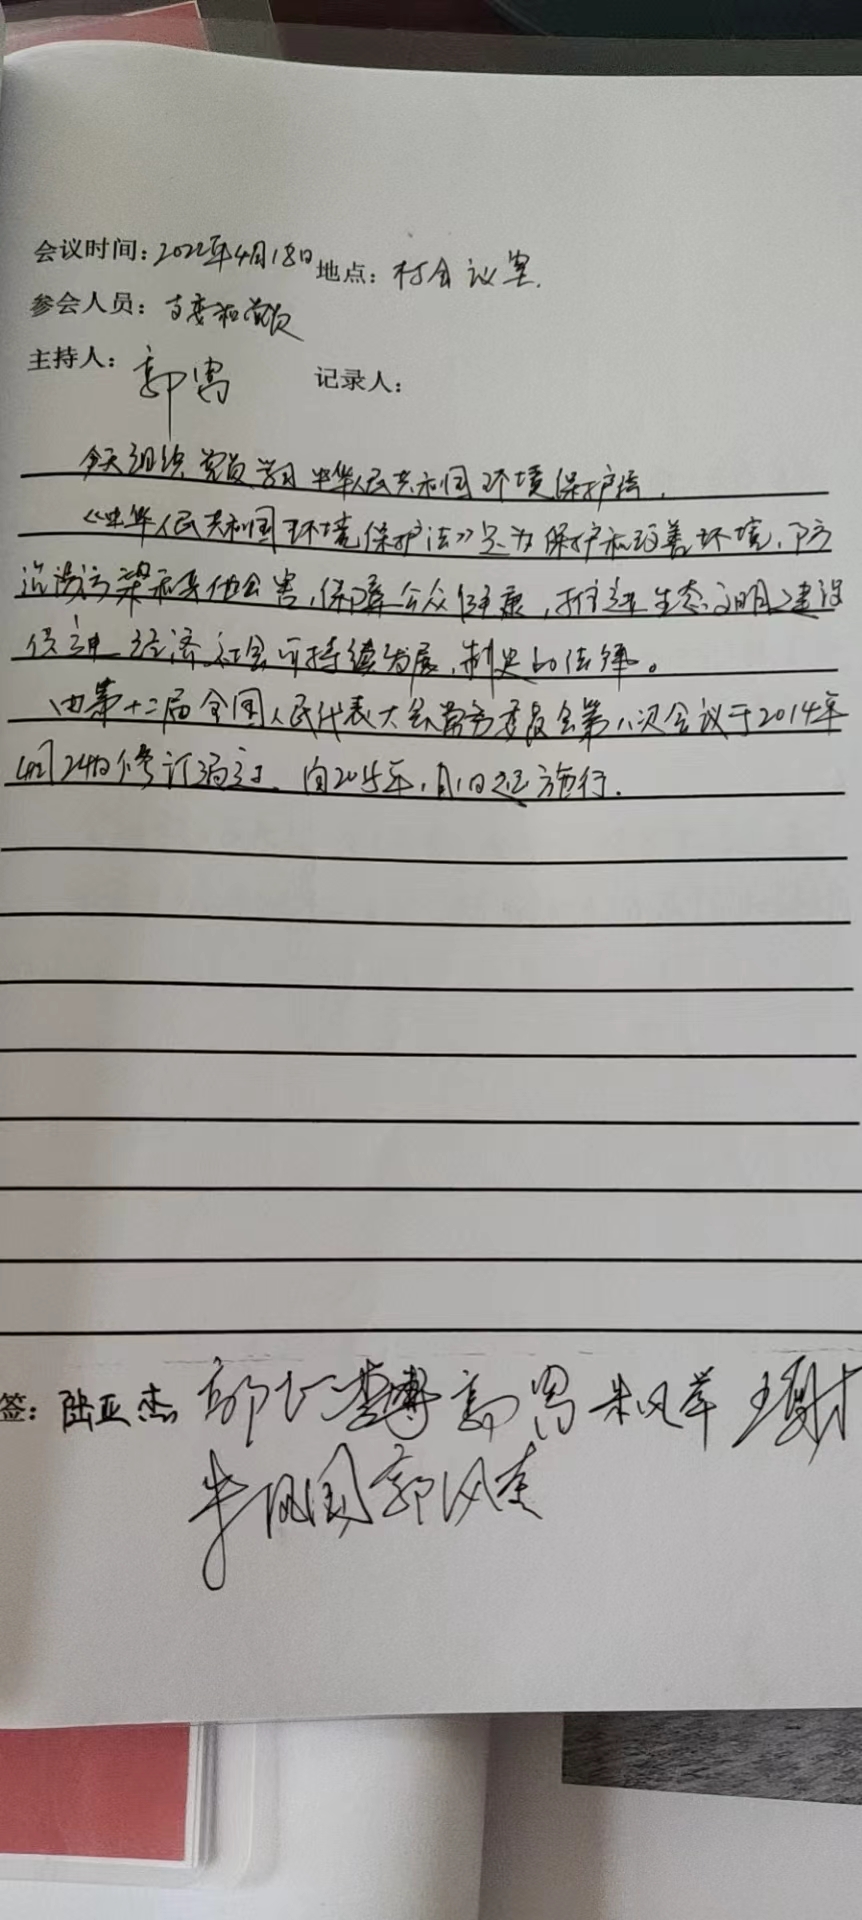 会议时间：2022年4月18日 地点：村会议室.
参会人员：支委和党员
主持人：郭富 记录人：
今天组织党员学习中华人民共和国环境保护法.
《中华人民共和国环境保护法》是为保护和改善环境,防
治污染和其他公害,保障公众健康,推进生态文明建设
促进经济社会可持续发展,制定的法律。
由第十二届全国人民代表大会常务委员会第八次会议于2014年
4月24日修订通过.自2015年1月1日起施行.
签：陆亚杰 朱凤萍
朱凤国